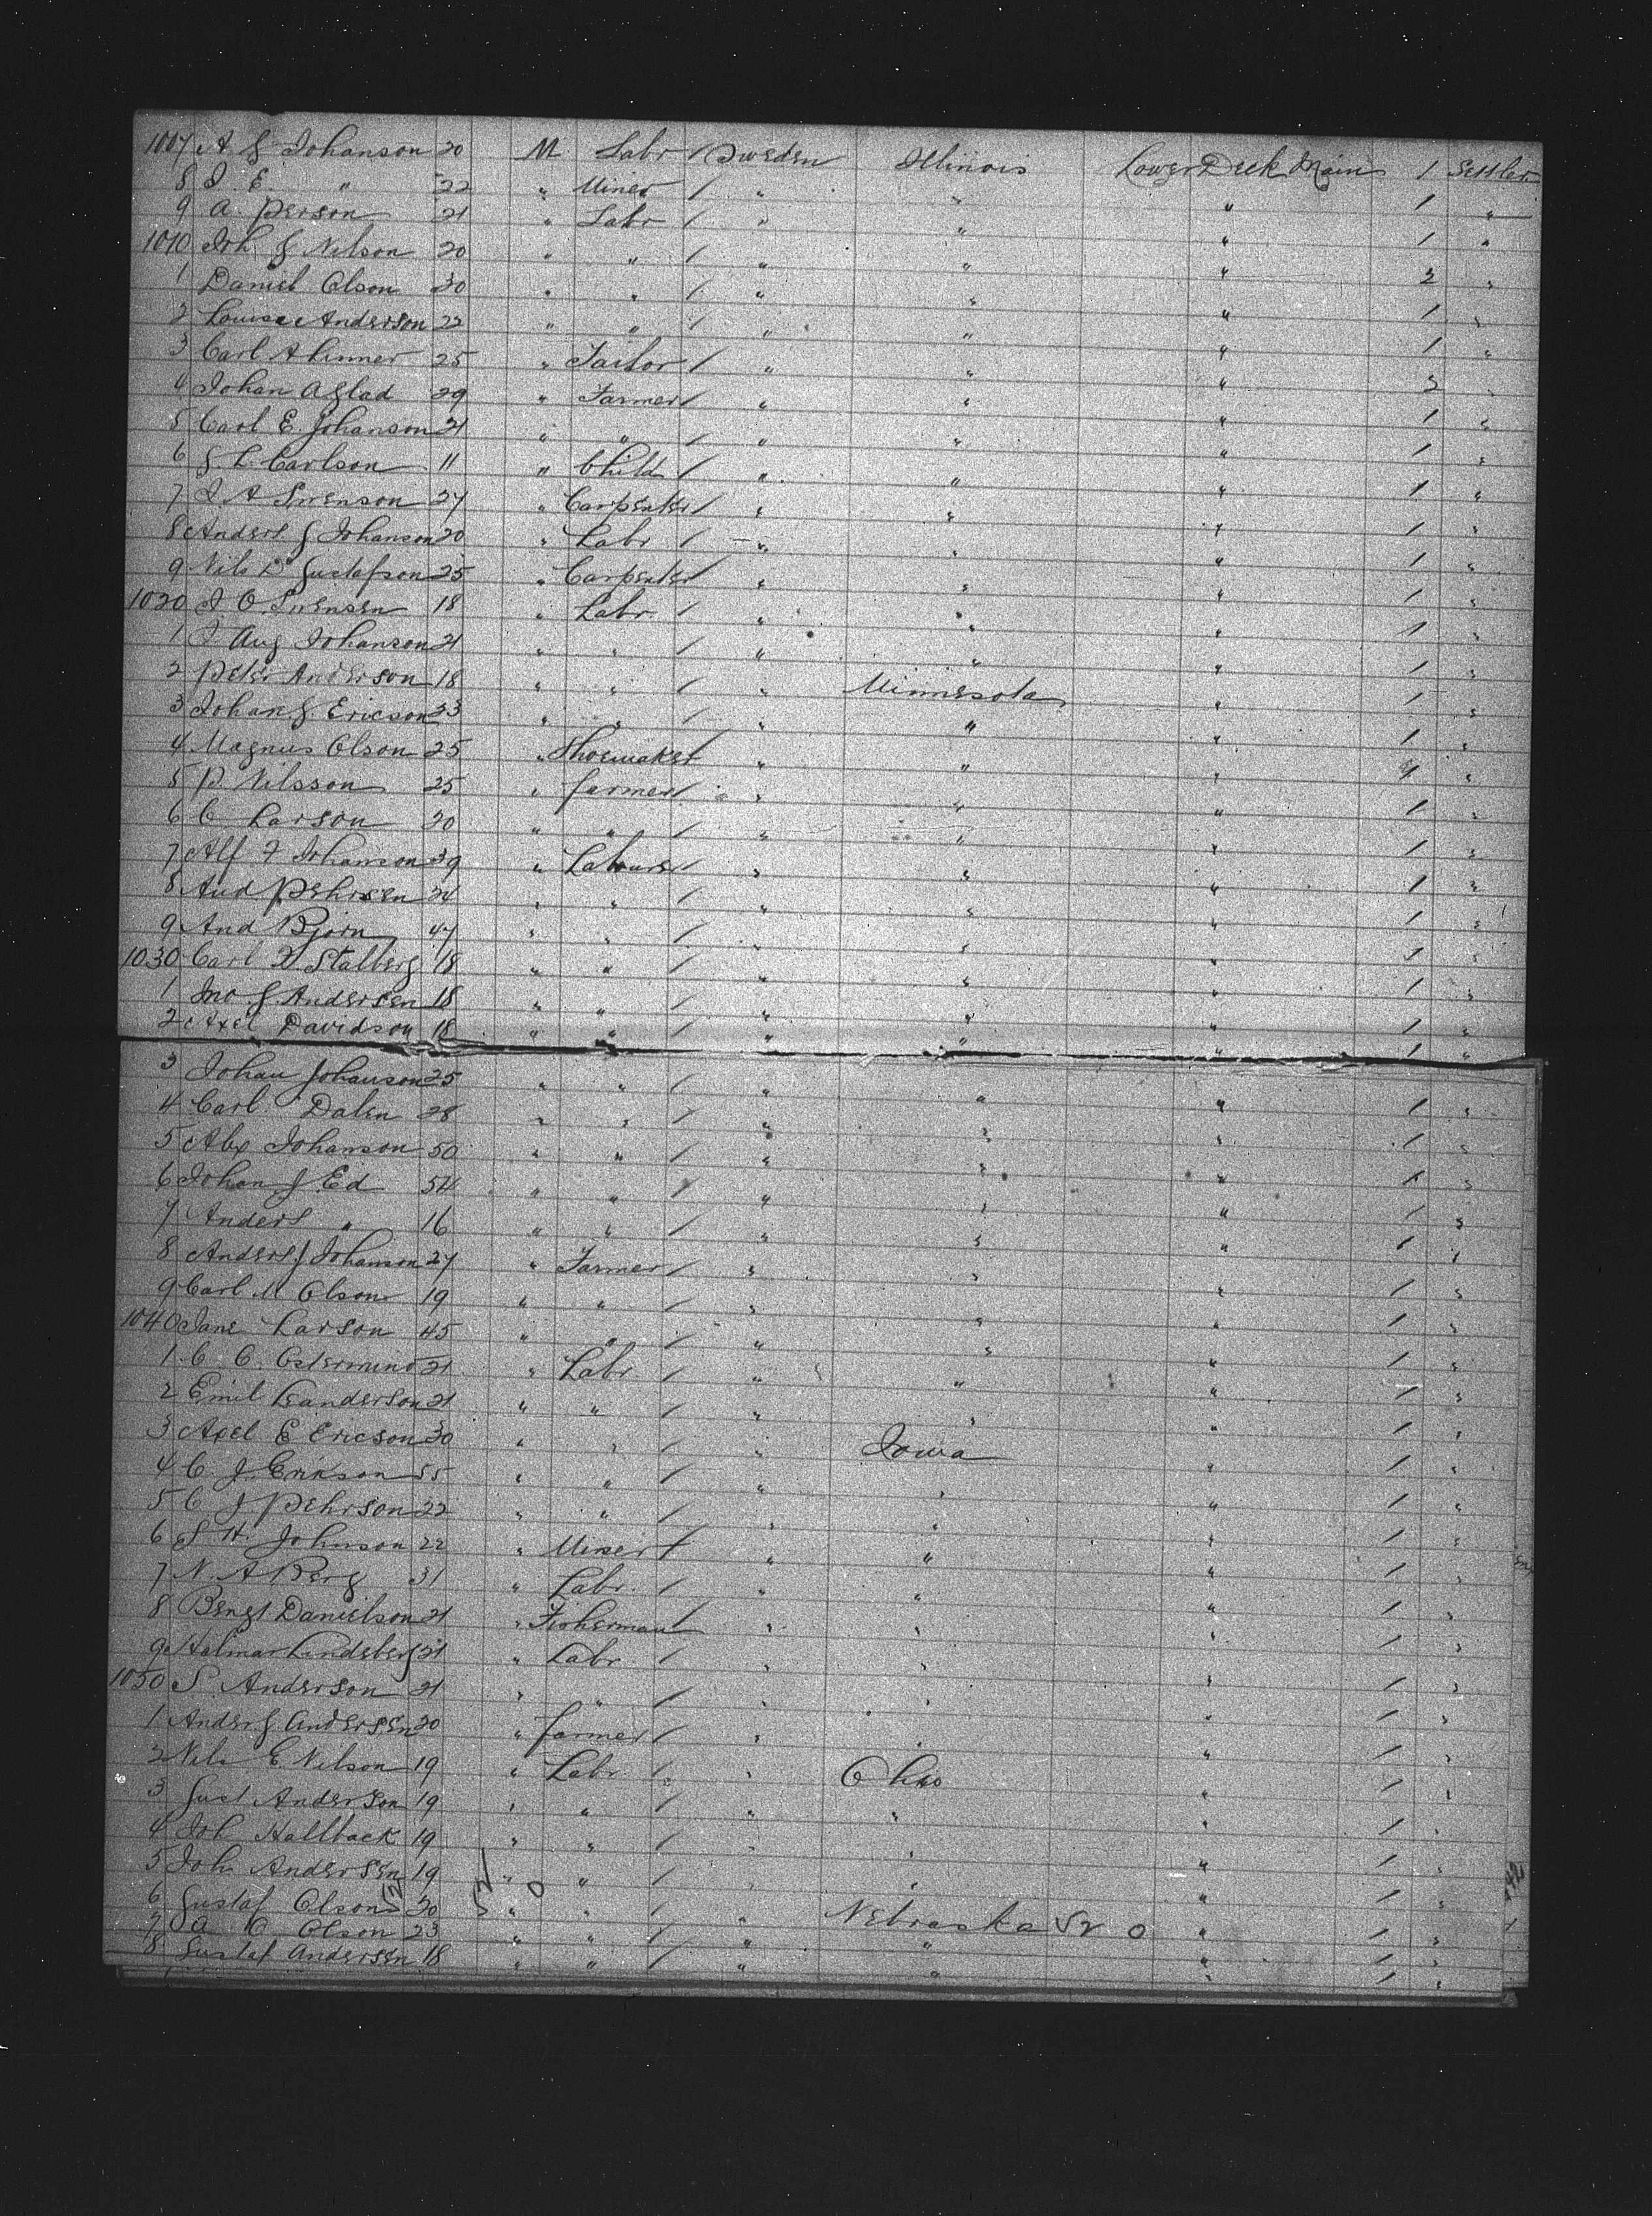 1007 A G Johanson 20 M Labr / Sweden Illinois Lower Deck Main 1 Settler
8 J. E. " 22 " Miner / " " " 1 "
9 A. Person 21 " Labr / " " " 1 "
1010 Joh G Nilson 20 " " / " " " 2 "
1 Daniel Olson 30 " " / " " " 1 "
2 Louise Anderson 22 " " / " " " 1 "
3 Carl A 25 " Tailor / " " " 2 "
4 Johan A Glad 29 " Farmer / " " " 1 "
5 Carl E. Johanson 21 " " / " " " 1 "
6 G. L. Carlson 11 " Child / " " " 1 "
7 J. A Swenson 27 " Carpenter / " " " 1 "
8 Anders G Johanson 20 " Labr / " " " 1 "
9 Nils L Gustafson 25 " Carpenter / " " " 1 "
1020 J O. Swensen 18 " Labr. / " " " 1 "
1 J Aug Johanson 21 " " / " " " 1 "
2 Peter Anderson 18 " " / " Minnesota " 1 "
3 Johan G. Ericson 23 " " / " " " 1 "
4 Magnus Olson 25 " Shoemaker / " " " 1 "
5 P. Nilsson 25 " farmer / " " " 1 "
6 C Larson 20 " " / " " " 1 "
7 Alf F Johanson 39 " Labourer / " " " 1 "
8 And Pehrsen 24 " " / " " " 1 "
9 And Bjorn 47 " " / " " " 1 "
1030 Carl Stalberg 18 " " / " " " 1 "
1 Jno G Andersen 18 " " / " " " 1 "
2 Axel Davidson 18 " " / " " " 1 "
3 Johan Johanson 25 " " / " " " 1 "
4 Carl Dalen 28 " " / " " " 1 "
5 Alex Johanson 50 " " / " " " 1 "
6 Johan J Ed 54 " " / " " " 1 "
7 Anders " 16 " " / " " " 1 "
8 Anders J Johanson 27 " Farmer / " " " 1 "
9 Carl M Olson 19 " " / " " " 1 "
1040 Jane Larson 45 " " / " " " 1 "
1 C. C. 21 " Labr / " " " 1 "
2 Emil Leanderson 21 " " / " " " 1 "
3 Axel E Ericson 30 " " / " Iowa " 1 "
4 C. J. Erikson 55 " " / " " " 1 "
5 C J Pehrson 22 " " / " " " 1 "
6 S H. Johnson 22 " Miner / " " " 1 "
7 N. A Berg 31 " Labr. / " " " 1 "
8 Bengt Danielson 21 " Fisherman / " " " 1 "
9 Halmar Lindsberg 21 " Labr / " " " 1 "
1050 S. Anderson 21 " " / " " " 1 "
1 Ander G. Andersen 20 " farmer / " " " 1 "
2 Nils E Nilson 19 " Labr / " Ohio " 1 "
3 Gust Anderson 19 " " / " " " 1 "
4 Joh Hallback 19 " " / " " " 1 "
5 Joh Andersen 19 " " / " " " 1 "
6 Gustaf Olson 20 " " / " Nebraska 52 0 " 1 "
7 A O Olson 23 " " / " " " 1 "
8 Gustaf Andersen 18 " " / " " " 1 "